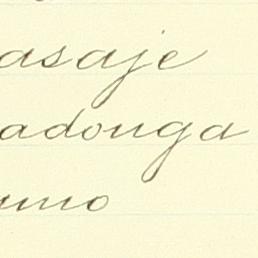 asaje
adonga
uno